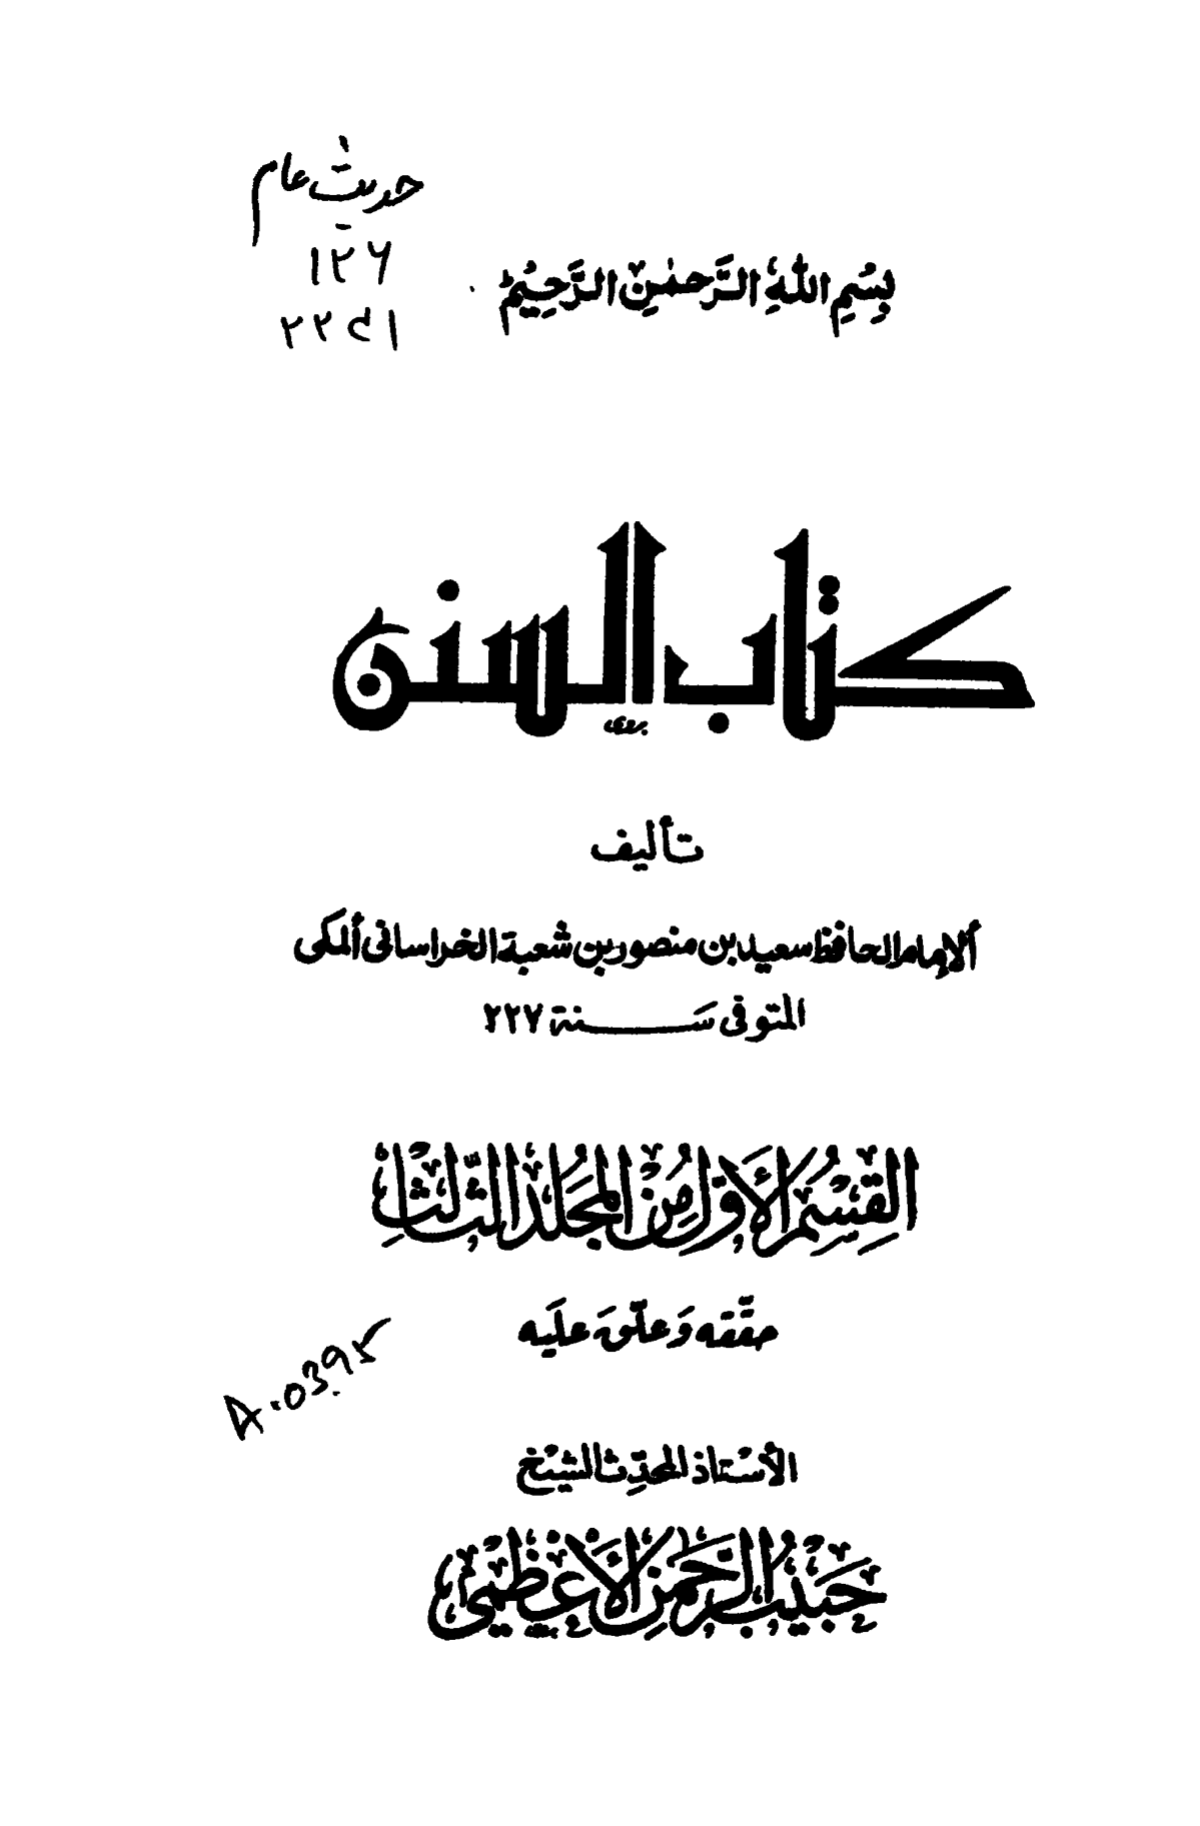 حديث عام
١٢٦
بِسْمِ اللهِ الرَّحمٰنِ الرَّحِيْمِ
كتاب السنن
تأليف
ألإمام الحافظ سعيد بن منصور بن شعبة الخراسانى ألمكى
المتوفى سَنة ٢٢٧
القِسْم الأوّل مِنَ المجَلد الثّالِث
حقّقه وَعلّقَ عليَه
الأسْتاذ المحدِّث الشيْخ
حَبيْبُ الرَّحمن الأعْظمِيْ